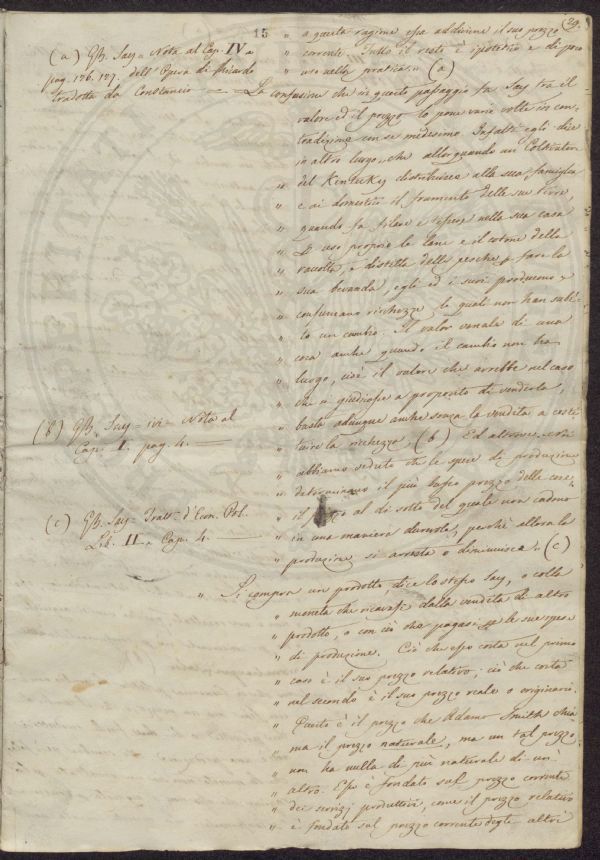 15
29.
(a) Gb. Say = Nota al Cap. IV a
pag. 126. 127. dell'Opera di Ricardo
tradotta da Constancio
(b) Gb. Say = ivi = Nota al
Cap. I. pag. 4.
(c) Gb. Say = Tratt. d'Econ. Pol.
Lib. II. Cap. 4.
" a questa ragione essa addiviene il suo prezzo
" corrente. Tutto il resto è ipotetico e di poco
" uso nella pratica. " (a)
= La confusione che in questo passaggio fa Say tra il
valore ed il prezzo lo pone varie volte in con-
tradizione con se medesimo. Infatti egli dice
in altro luogo, che allorquando un Coltivatore
" del Kentuky distribuisce alla sua famiglia
" e ai domestici il frumento delle sue terre,
" quando fa filare e tessere nella sua casa
" p. uso proprio le lane e il cotone della
" raccolta, e distilla delle pesche p. fare la
" sua bevanda, egli ed i suoi producono e
" consumano richezze le quali non han subi-
" to un cambio. Il valor venale di una
" cosa anche quando il cambio non ha
" luogo, cioè il valore che avrebbe nel caso
" che si giudicasse a proposito di venderla,
" basta adunque anche senza la vendita a costi-
" tuire la richezza. (b) Ed altrove. Noi
" abbiamo veduto che le spese di produzione
" determinano il più basso prezzo delle cose:
" il prezzo al di sotto del quale non cadono
" in una maniera durevole, perchè allora la
" produzione si arresta o diminuisce. (c)
" Si compra un prodotto, dice lo stesso Say, o colla
" moneta che ricavasi dalla vendita di altro
" prodotto, o con ciò che pagasi p. le sue spese
" di produzione. Ciò che esso costa nel primo
" caso è il suo prezzo relativo; ciò che costa
" nel secondo è il suo prezzo reale o originario.
" Questo è il prezzo che Adamo Smith chia-
" ma il prezzo naturale, ma un tal prezzo
" non ha nulla di più naturale di un
" altro. Esso è fondato sul prezzo corrente
" dei servizj produttivi, come il prezzo relativo
" è fondato sul prezzo corrente degli altri